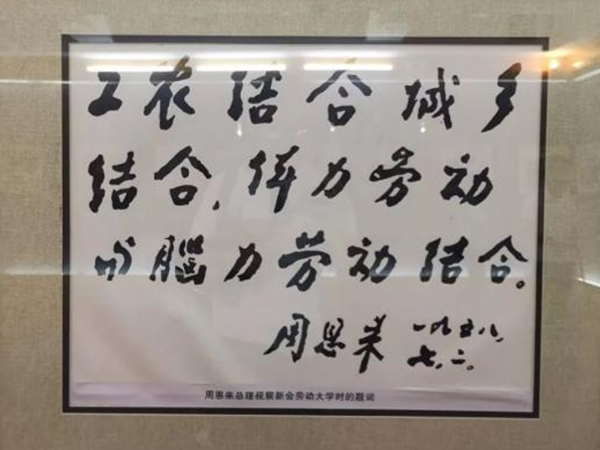 工农结合城乡
结合,体力劳动
与腦力劳动结合。
周恩来 一九五八,
七,二。
周恩来总理视察新会劳动大学时的题词